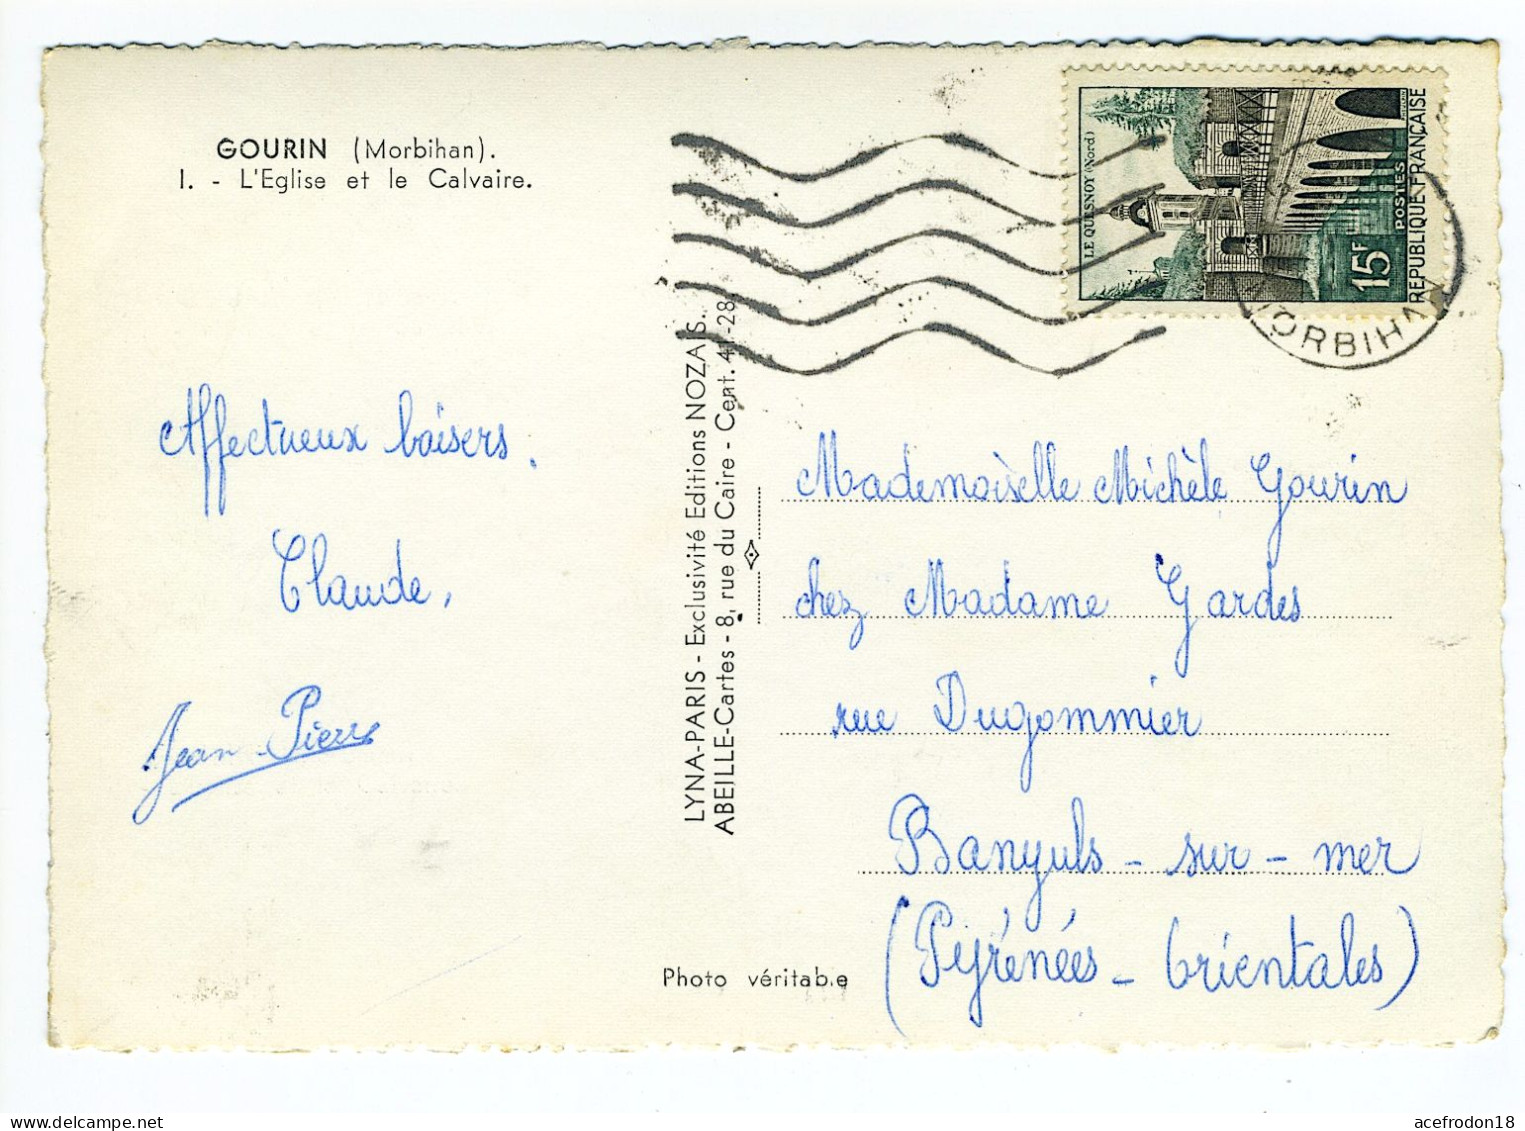 GOURIN (Morbihan).
I. - L'Eglise et le Calvaire.
Affectueux baisers.
Claude,
Jean-Pierre
LYNA-PARIS - Exclusivité Editions NOZAIS.
ABEILLE-Cartes - 8, rue du Caire - Cent. 41-28
Photo véritab.e
LE QUESNOY (Nord)
15F
POSTES
REPUBLIQUE FRANÇAISE
MORBIHAN
Mademoiselle Michèle Gourin
chez Madame Gardes
rue Dugommier
Banyuls - sur - mer
(Pyrénées - Orientales)
acefrodon18